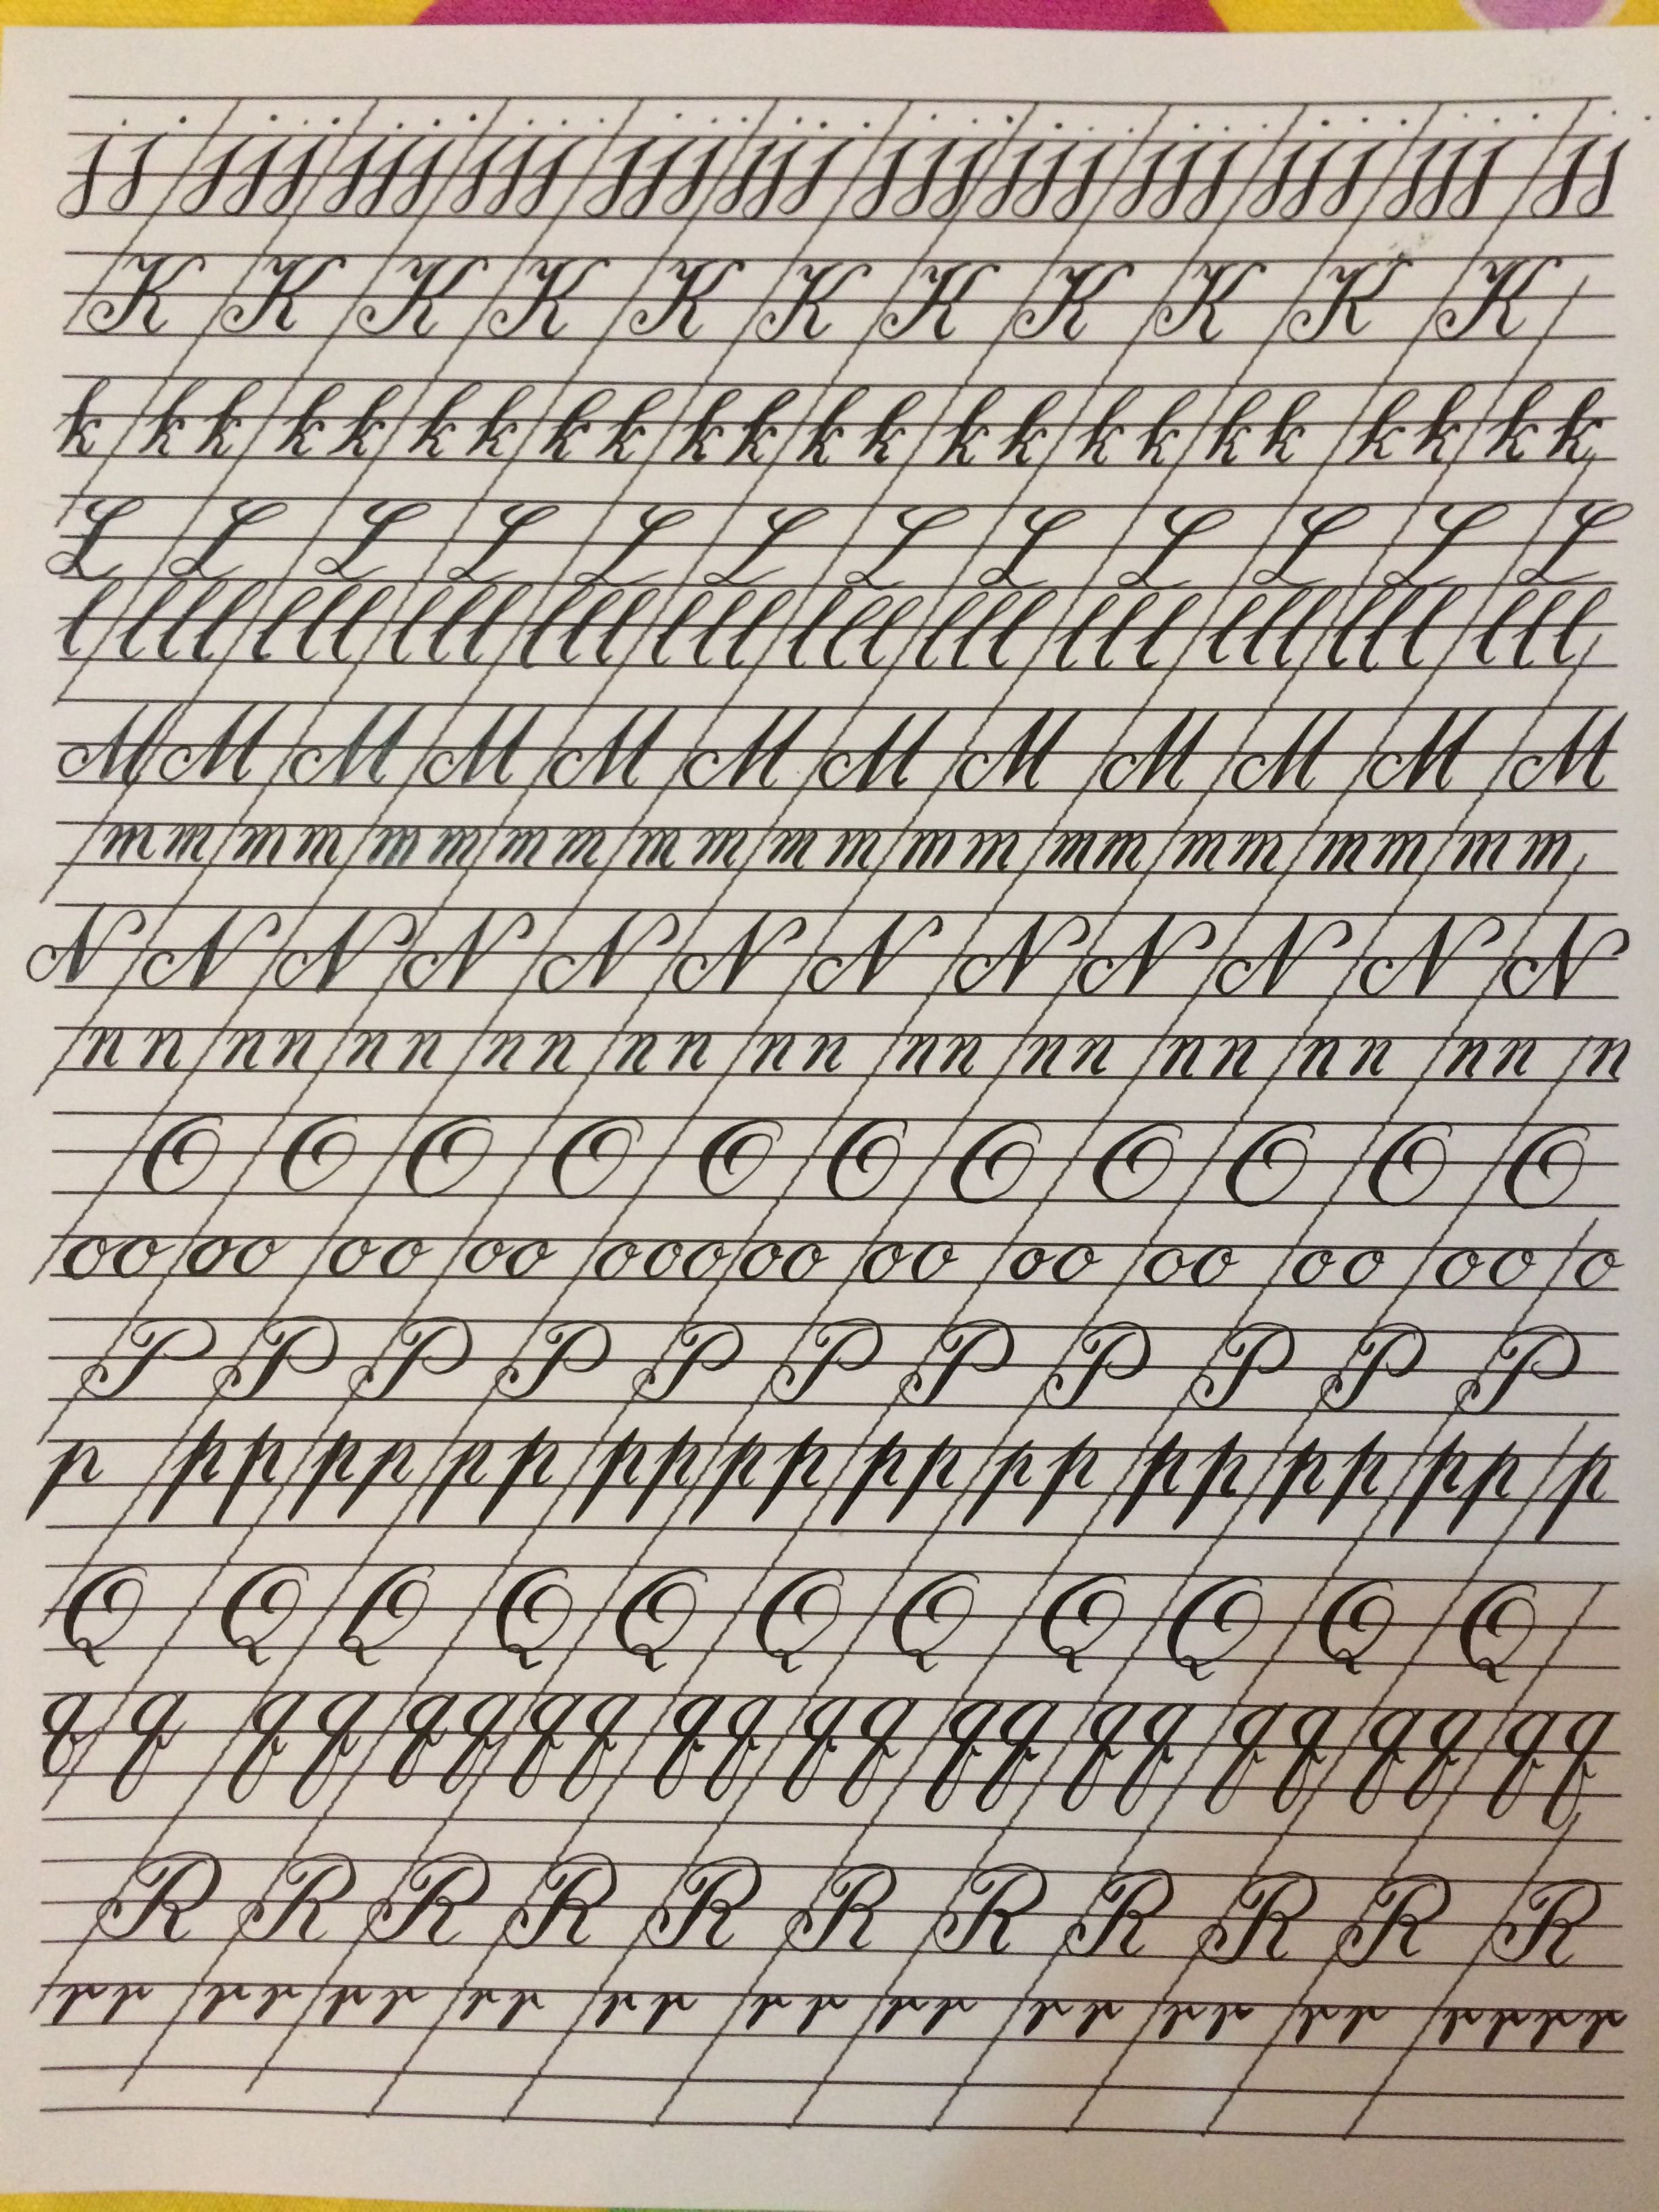 jj jjj jjj jjj jjj jjj jjj jjj jjj jjj jjj jj
K K K K K K K K K K K
k kk kk kk kk kk kk kk kk kk kk kk
L L L L L L L L L L L L
l lll lll lll lll lll lll lll lll lll lll lll
M M M M M M M M M M M M
mm mm mm mm mm mm mm mm mm mm mm
N N N N N N N N N N N N
nn nn nn nn nn nn nn nn nn nn nn n
O O O O O O O O O O O
oo oo oo oo ooo oo oo oo oo oo oo o
P P P P P P P P P P P
p pp pp pp pp pp pp pp pp pp pp p
Q Q Q Q Q Q Q Q Q Q Q
q q qq qq qq qq qq qq qq qq qq qq
R R R R R R R R R R R
rr rr rr rr rr rr rr rr rr rr rrrr